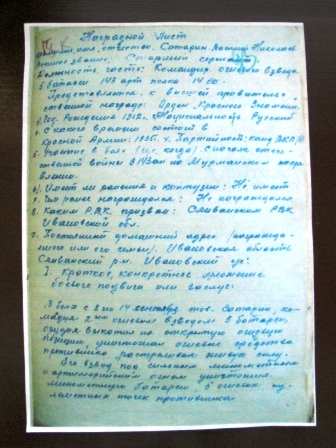 Наградной Лист
имя, отчество. Сатарин Николаев
звание: Старший сержант
Должность часть: Командир огневого взвода
5 батареи 143 арт полка 14 сд.
Представляется к высшей правительс-
твенной награде: Орден Красного Знамени.
Год Рождения 1912г. Национальность Русский
С какого времени состоит в
Красной Армии: 1935г. Партийность: канд ВКП(б)
Участие в боях (где, когда) С начала отече-
ственной войны в 143ап на Мурманском нап-
равлении.
Имеет ли ранения и контузии: Не имеет
Чем ранее награждался: Не награждался
Каким Р.В.К. призван: РВК
Ивановской обл.
Постоянный домашний адрес (награжда-
емого или его семьи). Ивановская область
р-н. Ивановский
I. Краткое, конкретное изложение
боевого подвига или заслуг:
В боях с 8 по 14 сентября тов. Сатарин, ко-
мандуя 2 ым огневым взводом 5 батареи,
орудия выкатил на открытую огневую
позицию, уничтожал огневые средства
противника, расстреливая живую силу.
Его взвод под сильным минометным
и артиллерийским огнем уничтожил
минометную батарею 5 огневых пу-
леметных точек противника